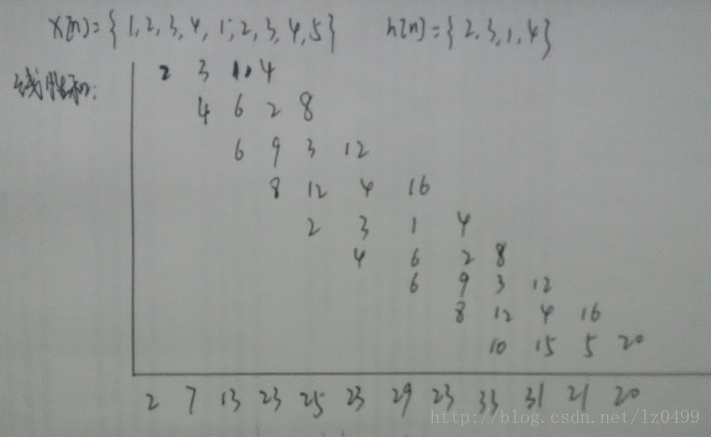 x[n]={1,2,3,4,1,2,3,4,5} h[n]={2,3,1,4}
2 3 1 4
4 6 2 8
6 9 3 12
8 12 4 16
2 3 1 4
4 6 2 8
6 9 3 12
8 12 4 16
10 15 5 20
2 7 13 23 25 23 29 23 33 31 21 20
http://blog.csdn.net/lz0499